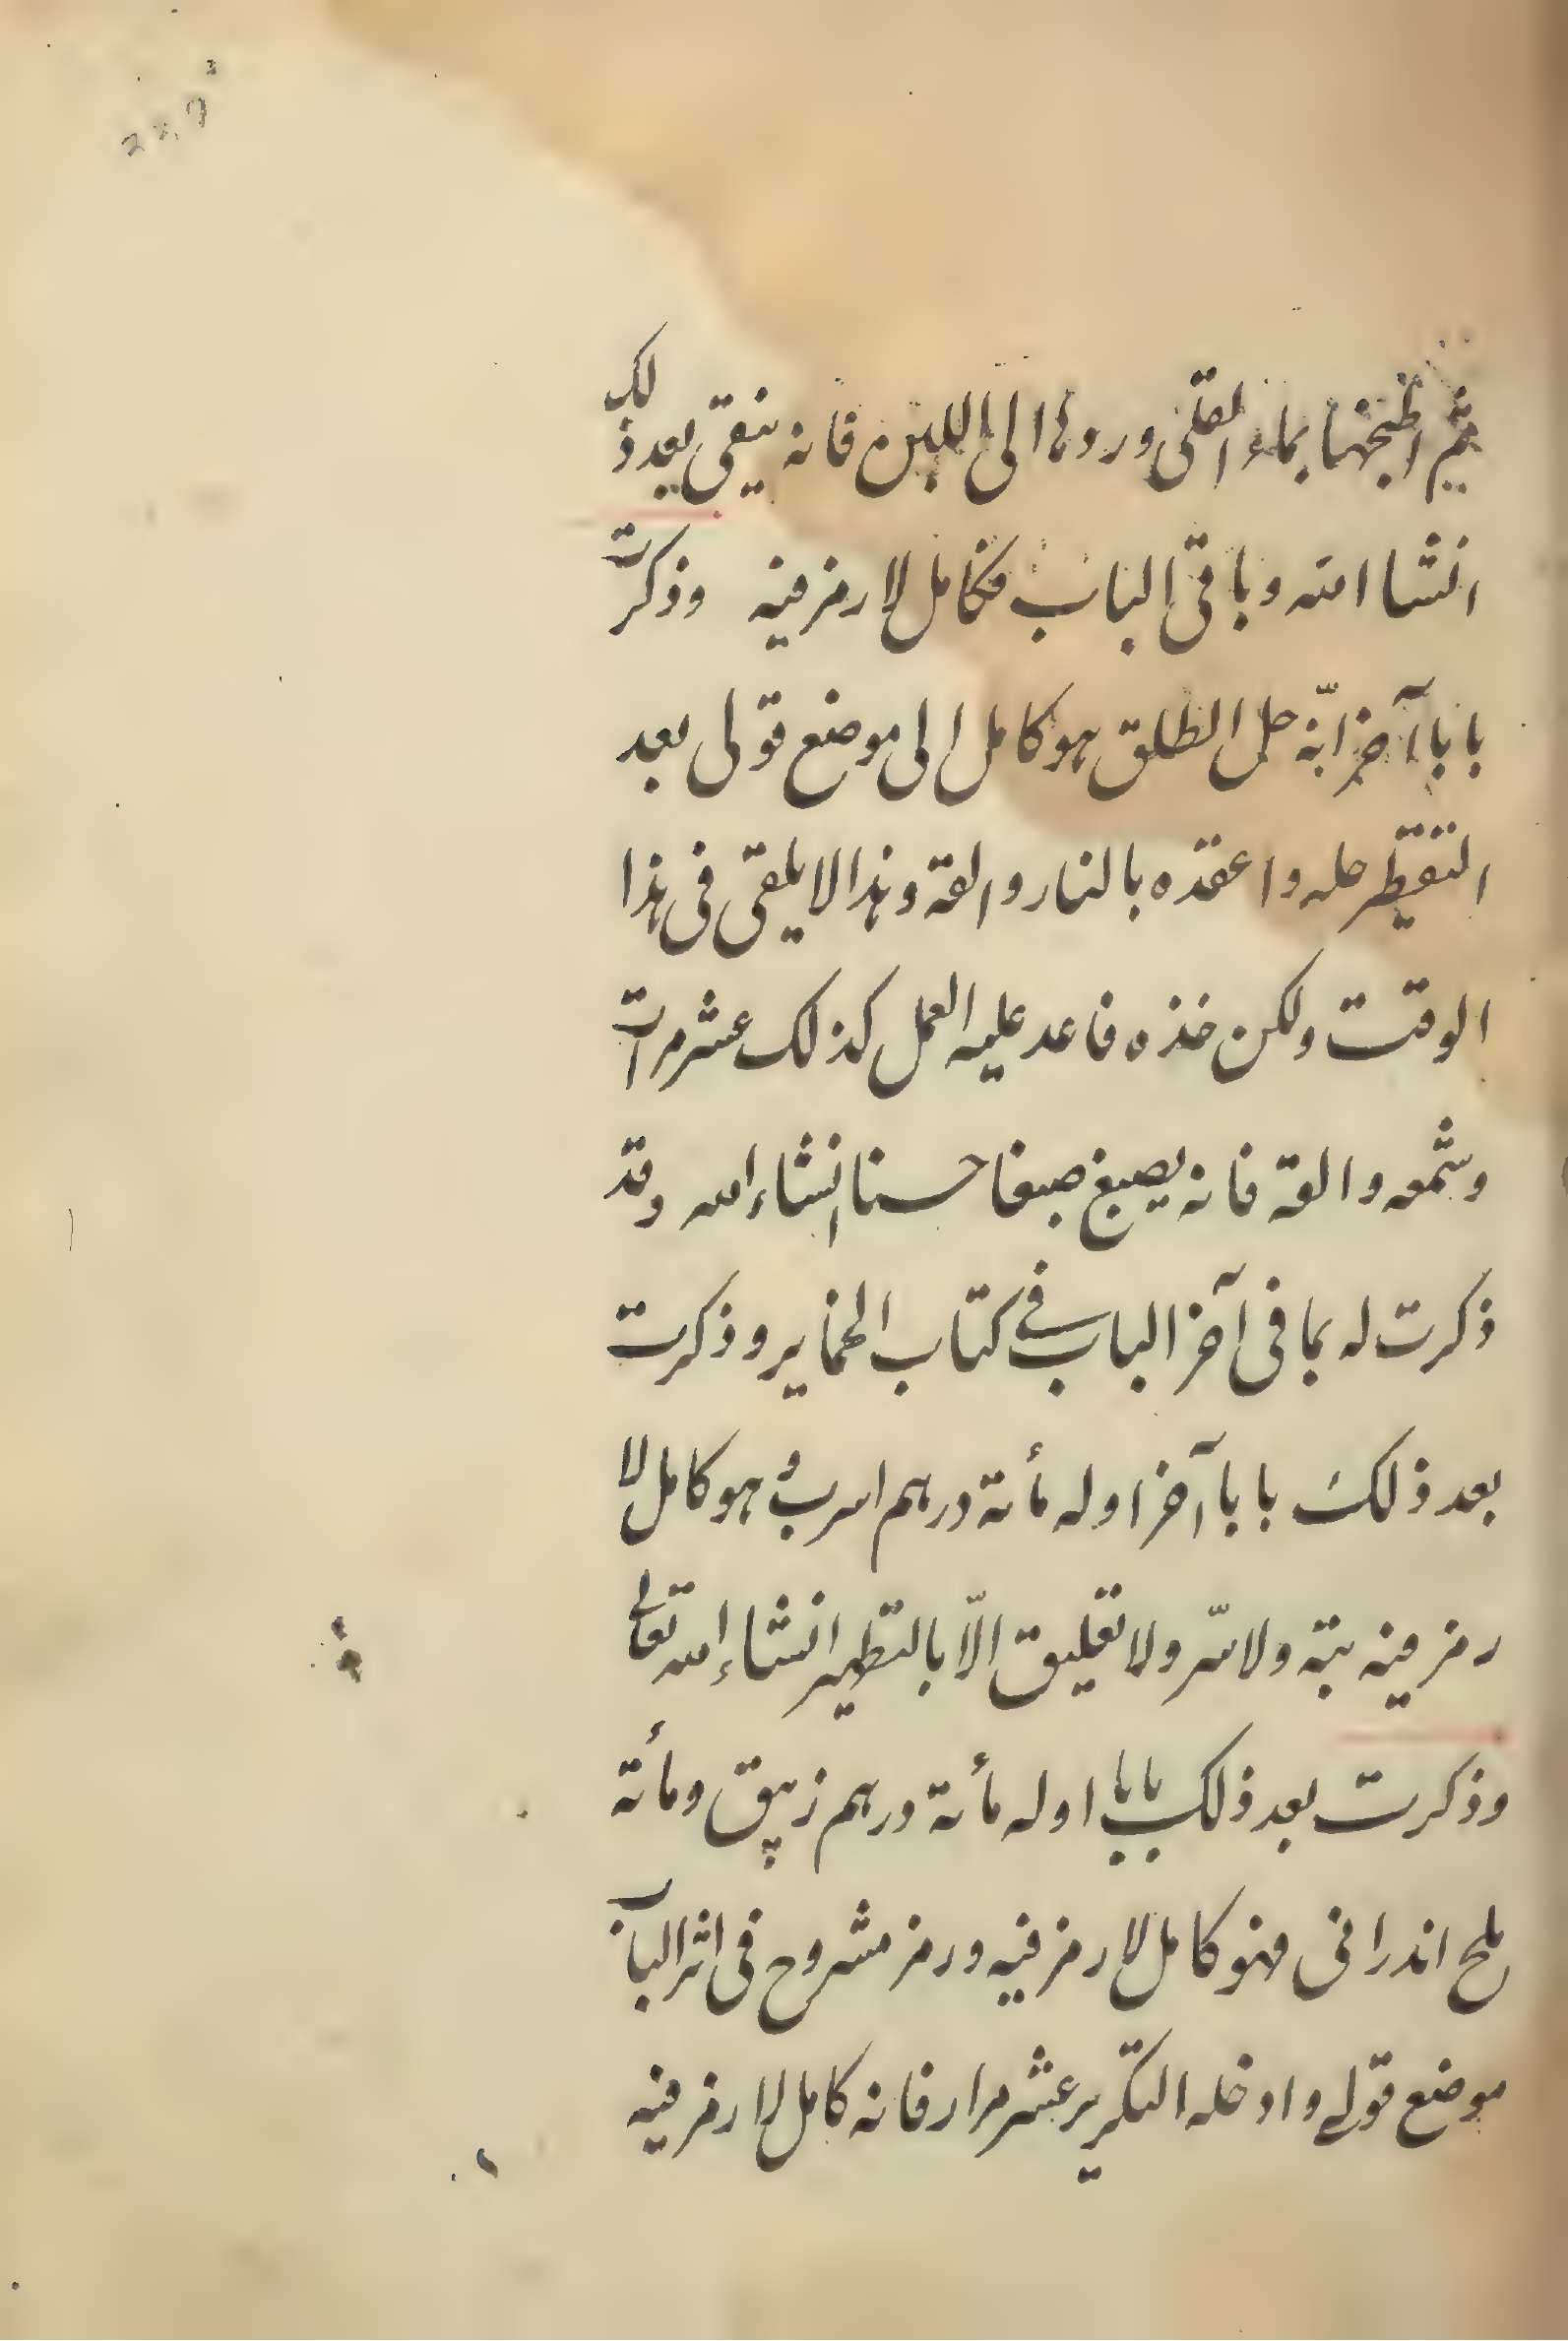 ثم اطبخها بماء القلى وردها الى اللبن فانه ينقى بعد ذلك
انشا الله وباقى الباب فكامل لا رمز فيه وذكرت
بابا آخر انّه حل الطلق هو كامل الى موضع قولى بعد
التقطير حله واعقده بالنار والقه وهذا لا يلقى فى هذا
الوقت ولكن خذه فاعد عليه العمل كذلك عشر مرات
وشمعه والقه فانه يصبغ صبغا حسنا انشاء الله وقد
ذكرت له بما فى آخر الباب فى كتاب الخماير وذكرت
بعد ذلك بابا آخر اوله مأته درهم اسرب وهو كامل لا
رمز فيه بتة ولا سرّ ولا تعليق الّا بالتطهير انشاء الله تعالى
وذكرت بعد ذلك بابا اوله مأته درهم زيبق ومأتة
ملح اندرانى فهو كامل لا رمز فيه ورمز مشروح فى اثر الباب
موضع قولى وادخله التكرير عشر مرار فانه كامل لا رمز فيه